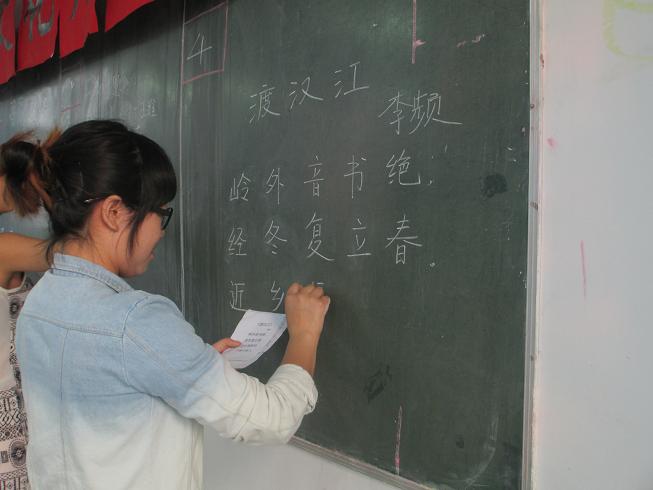 4
渡汉江
李频
岭外音书绝,
经冬复立春。
近乡